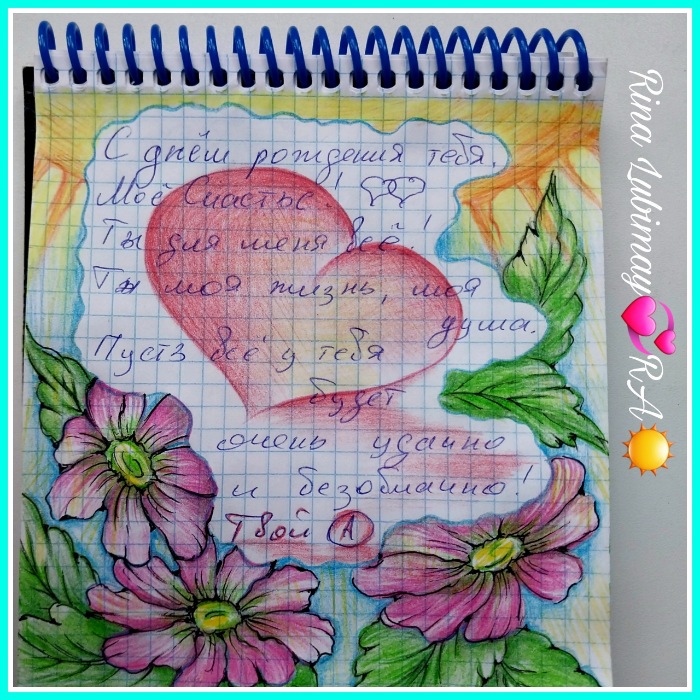 С днём рождения тебя.
Моё Счастье!
Ты для меня всё!
Ты моя жизнь, моя
душа.
Пусть всё у тебя
будет
очень удачно
и безоблачно!
Твой А
Rina Lubimay💞RA☀️